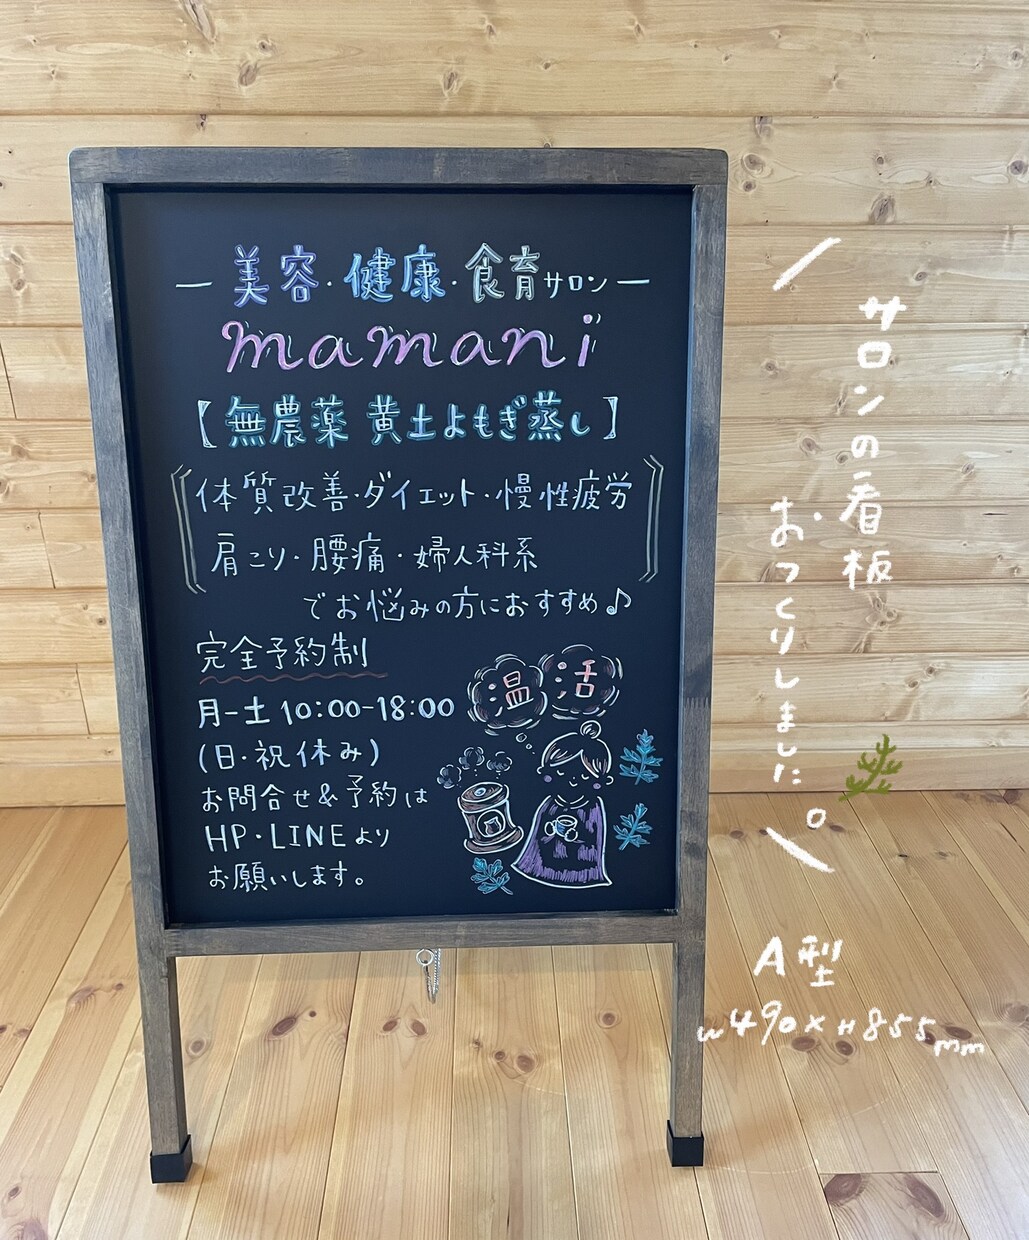 ー美容・健康・食育サロンー
mamani
【無農薬 黄土よもぎ蒸し】
体質改善・ダイエット・慢性疲労
肩こり・腰痛・婦人科系
でお悩みの方におすすめ♪
完全予約制
月ー土 10:00-18:00
(日・祝休み)
お問合せ&予約は
HP・LINEより
お願いします。
温活
サロンの看板
おつくりしました。
A型
W490×H855mm